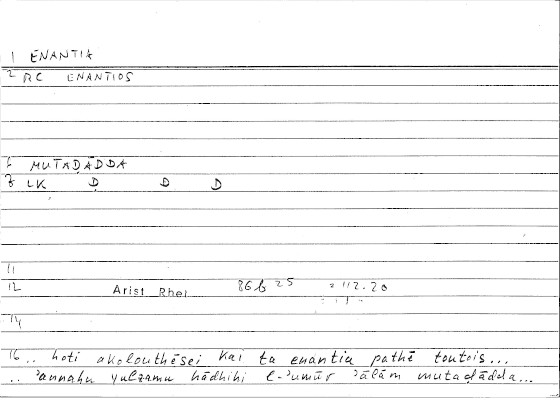 1 ENANTIA
2 RC ENANTIOS
6 MUTAḌĀDDA
7 LK Ḍ D D
11
12 Arist Rhet 86b 25 = 112.20
14
16 .. hoti akolouthēsei kai ta enantia pathē toutois...
.. ʾannahu yulzamu hādhihi l-ʾumūr ʾālām mutaḍādda...